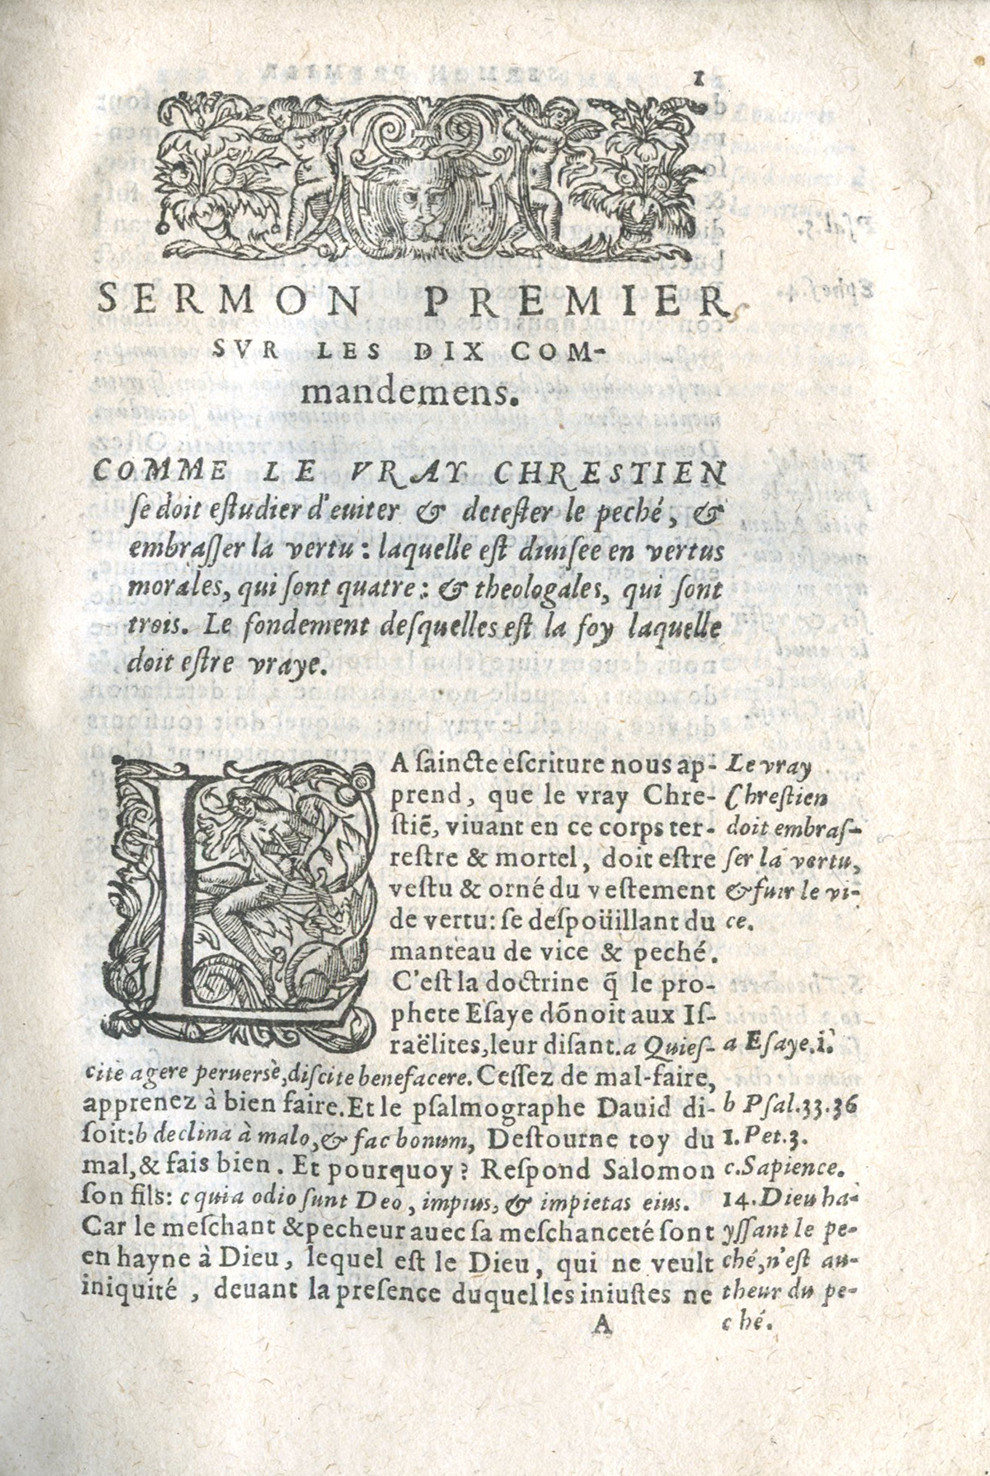 1
SERMON PREMIER
SVR LES DIX COM-
mandemens.
COMME LE VRAY CHRESTIEN
ſe doit eſtudier d'euiter & deteſter le peché, &
embraſſer la vertu : laquelle eſt diuiſee en vertus
morales, qui ſont quatre : & theologales, qui ſont
trois. Le fondement deſquelles eſt la foy laquelle
doit eſtre vraye.
LA ſaincte eſcriture nous ap-
prend, que le vray Chre-
ſtiẽ, viuant en ce corps ter-
reſtre & mortel, doit eſtre
veſtu & orné du veſtement
de vertu: ſe deſpoüillant du
manteau de vice & peché.
C'eſt la doctrine q̃ le pro-
phete Eſaye dõnoit aux Iſ-
raëlites, leur diſant. a Quieſ-
cite agere peruersè, diſcite benefacere. Ceſſez de mal-faire,
apprenez à bien faire. Et le pſalmographe Dauid di-
ſoit: b declina à malo, & fac bonum, Deſtourne toy du
mal, & fais bien. Et pourquoy? Reſpond Salomon
ſon fils: c quia odio ſunt Deo, impius, & impietas eius.
Car le meſchant & pecheur auec ſa meſchanceté ſont
en hayne à Dieu, lequel eſt le Dieu, qui ne veult
iniquité , deuant la preſence duquel les iniuſtes ne
A
Le vray
Chreſtien
doit embraſ-
ſer la vertu,
& fuir le vi-
ce.
a Eſaye.1.
b Pſal.33.36
1.Pet.3.
c.Sapience.
14. Dieu ha-
yſſant le pe-
ché, n'eſt au-
theur du pe-
ché.